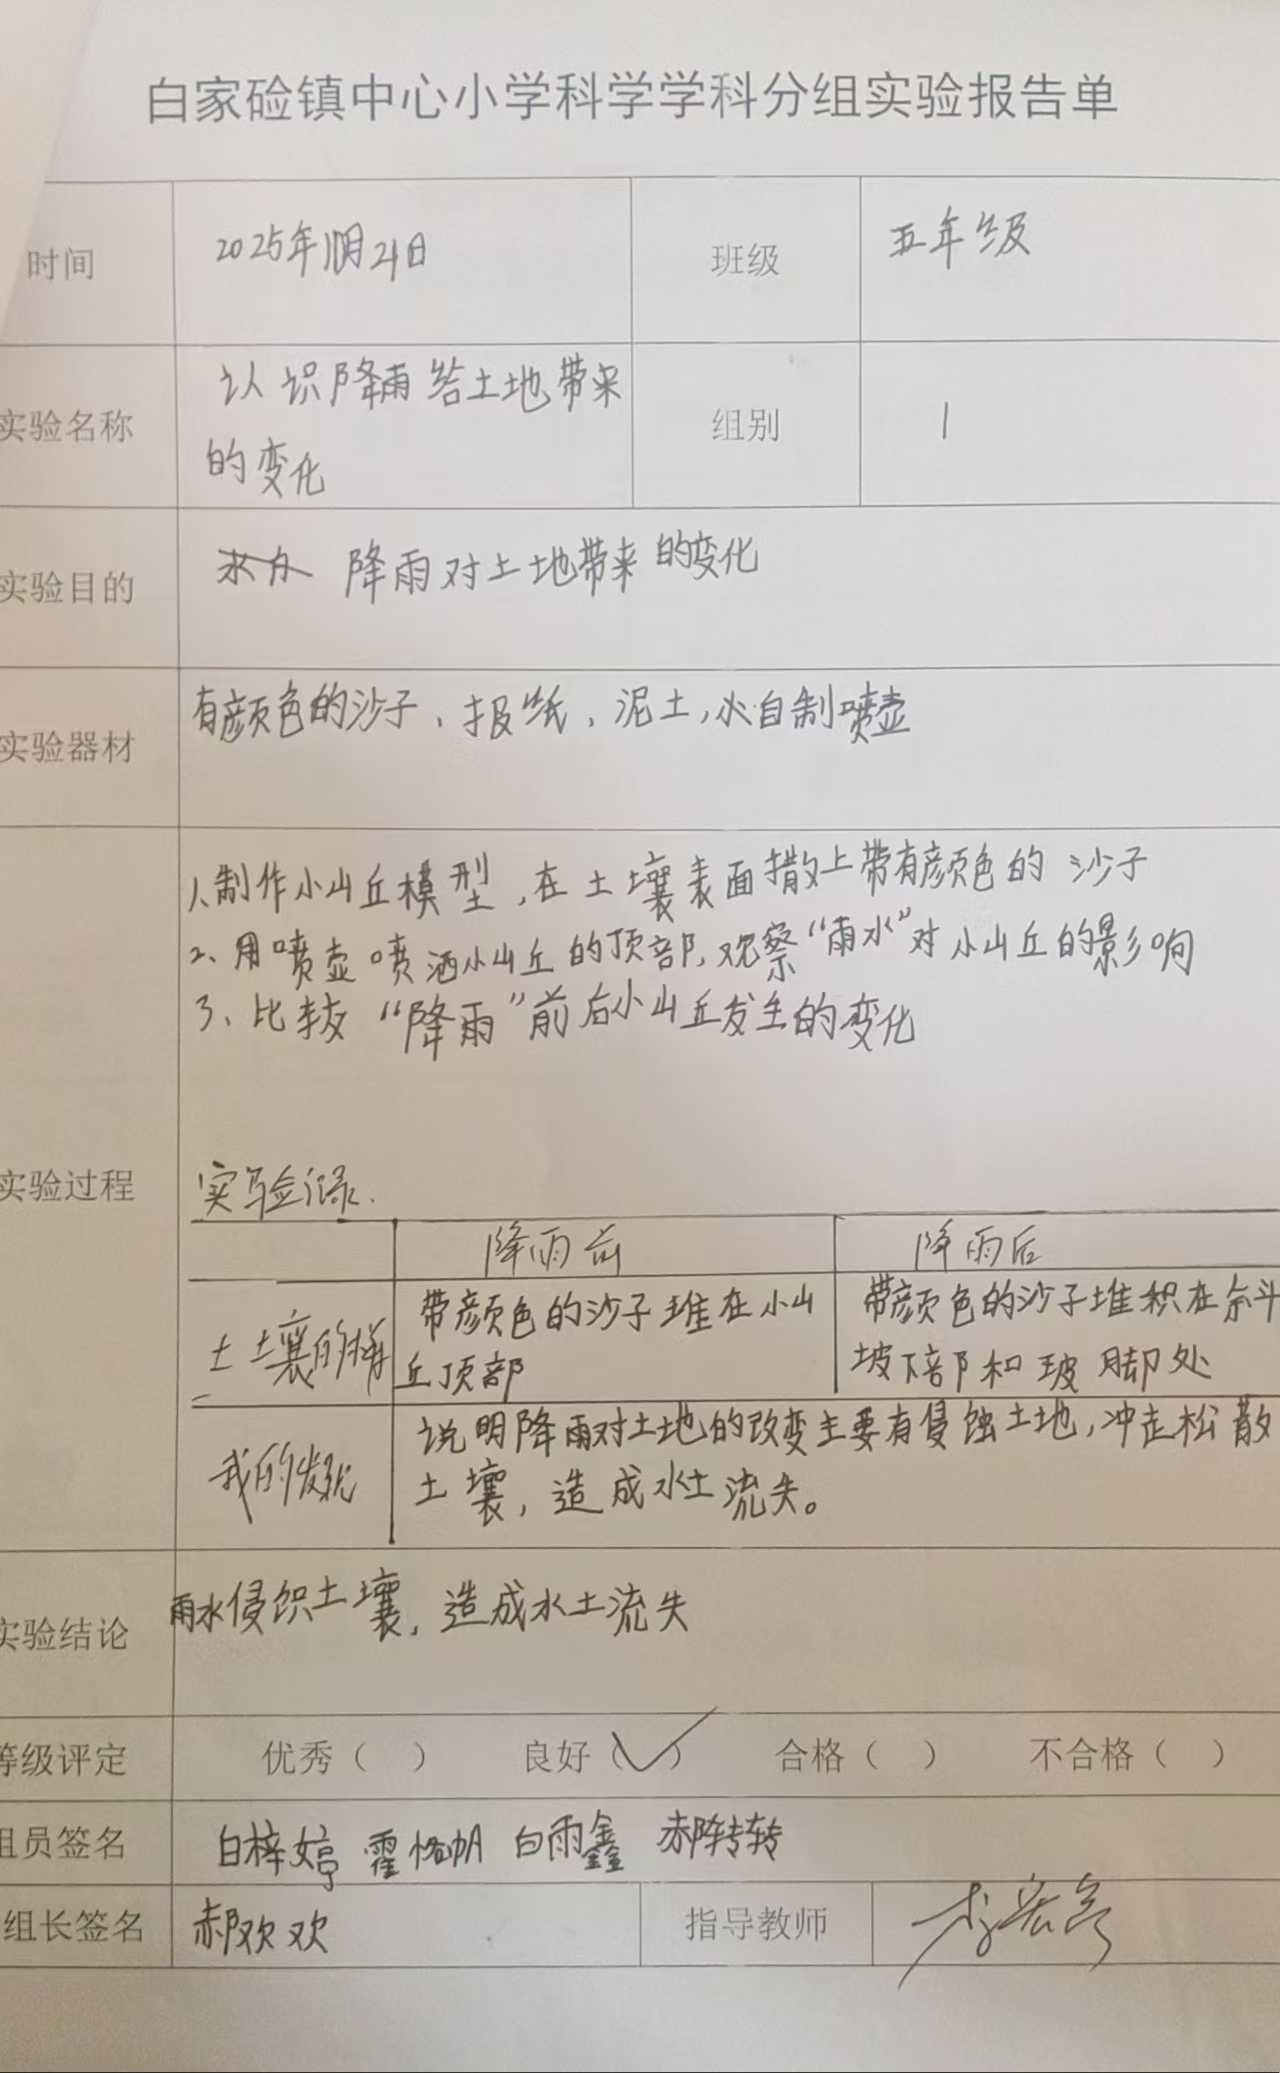 白家硷镇中心小学科学学科分组实验报告单
时间 2025年 月21日 班级 五年级
实验名称 认识降雨给土地带来的变化 组别 1
实验目的 降雨对土地带来的变化
实验器材 有颜色的沙子、报纸、泥土,水自制喷壶
实验过程
1、制作小山丘模型,在土壤表面撒上带有颜色的沙子
2、用喷壶喷洒小山丘的顶部,观察“雨水”对小山丘的影响
3、比较“降雨”前后小山丘发生的变化
实验记录.
降雨前 降雨后
土土壤的
带颜色的沙子堆在小山
丘顶部
带颜色的沙子堆积在 斗
坡下部和坡脚处
我的发现
说明降雨对土地的改变主要有侵蚀土地,冲走松散
土壤,造成水土流失。
实验结论 雨水侵蚀土壤,造成水土流失
等级评定 优秀( ) 良好(✓) 合格( ) 不合格( )
组员签名 白梓婷 霍 帆 白雨鑫 郝 转
组长签名 郝欢欢 指导教师